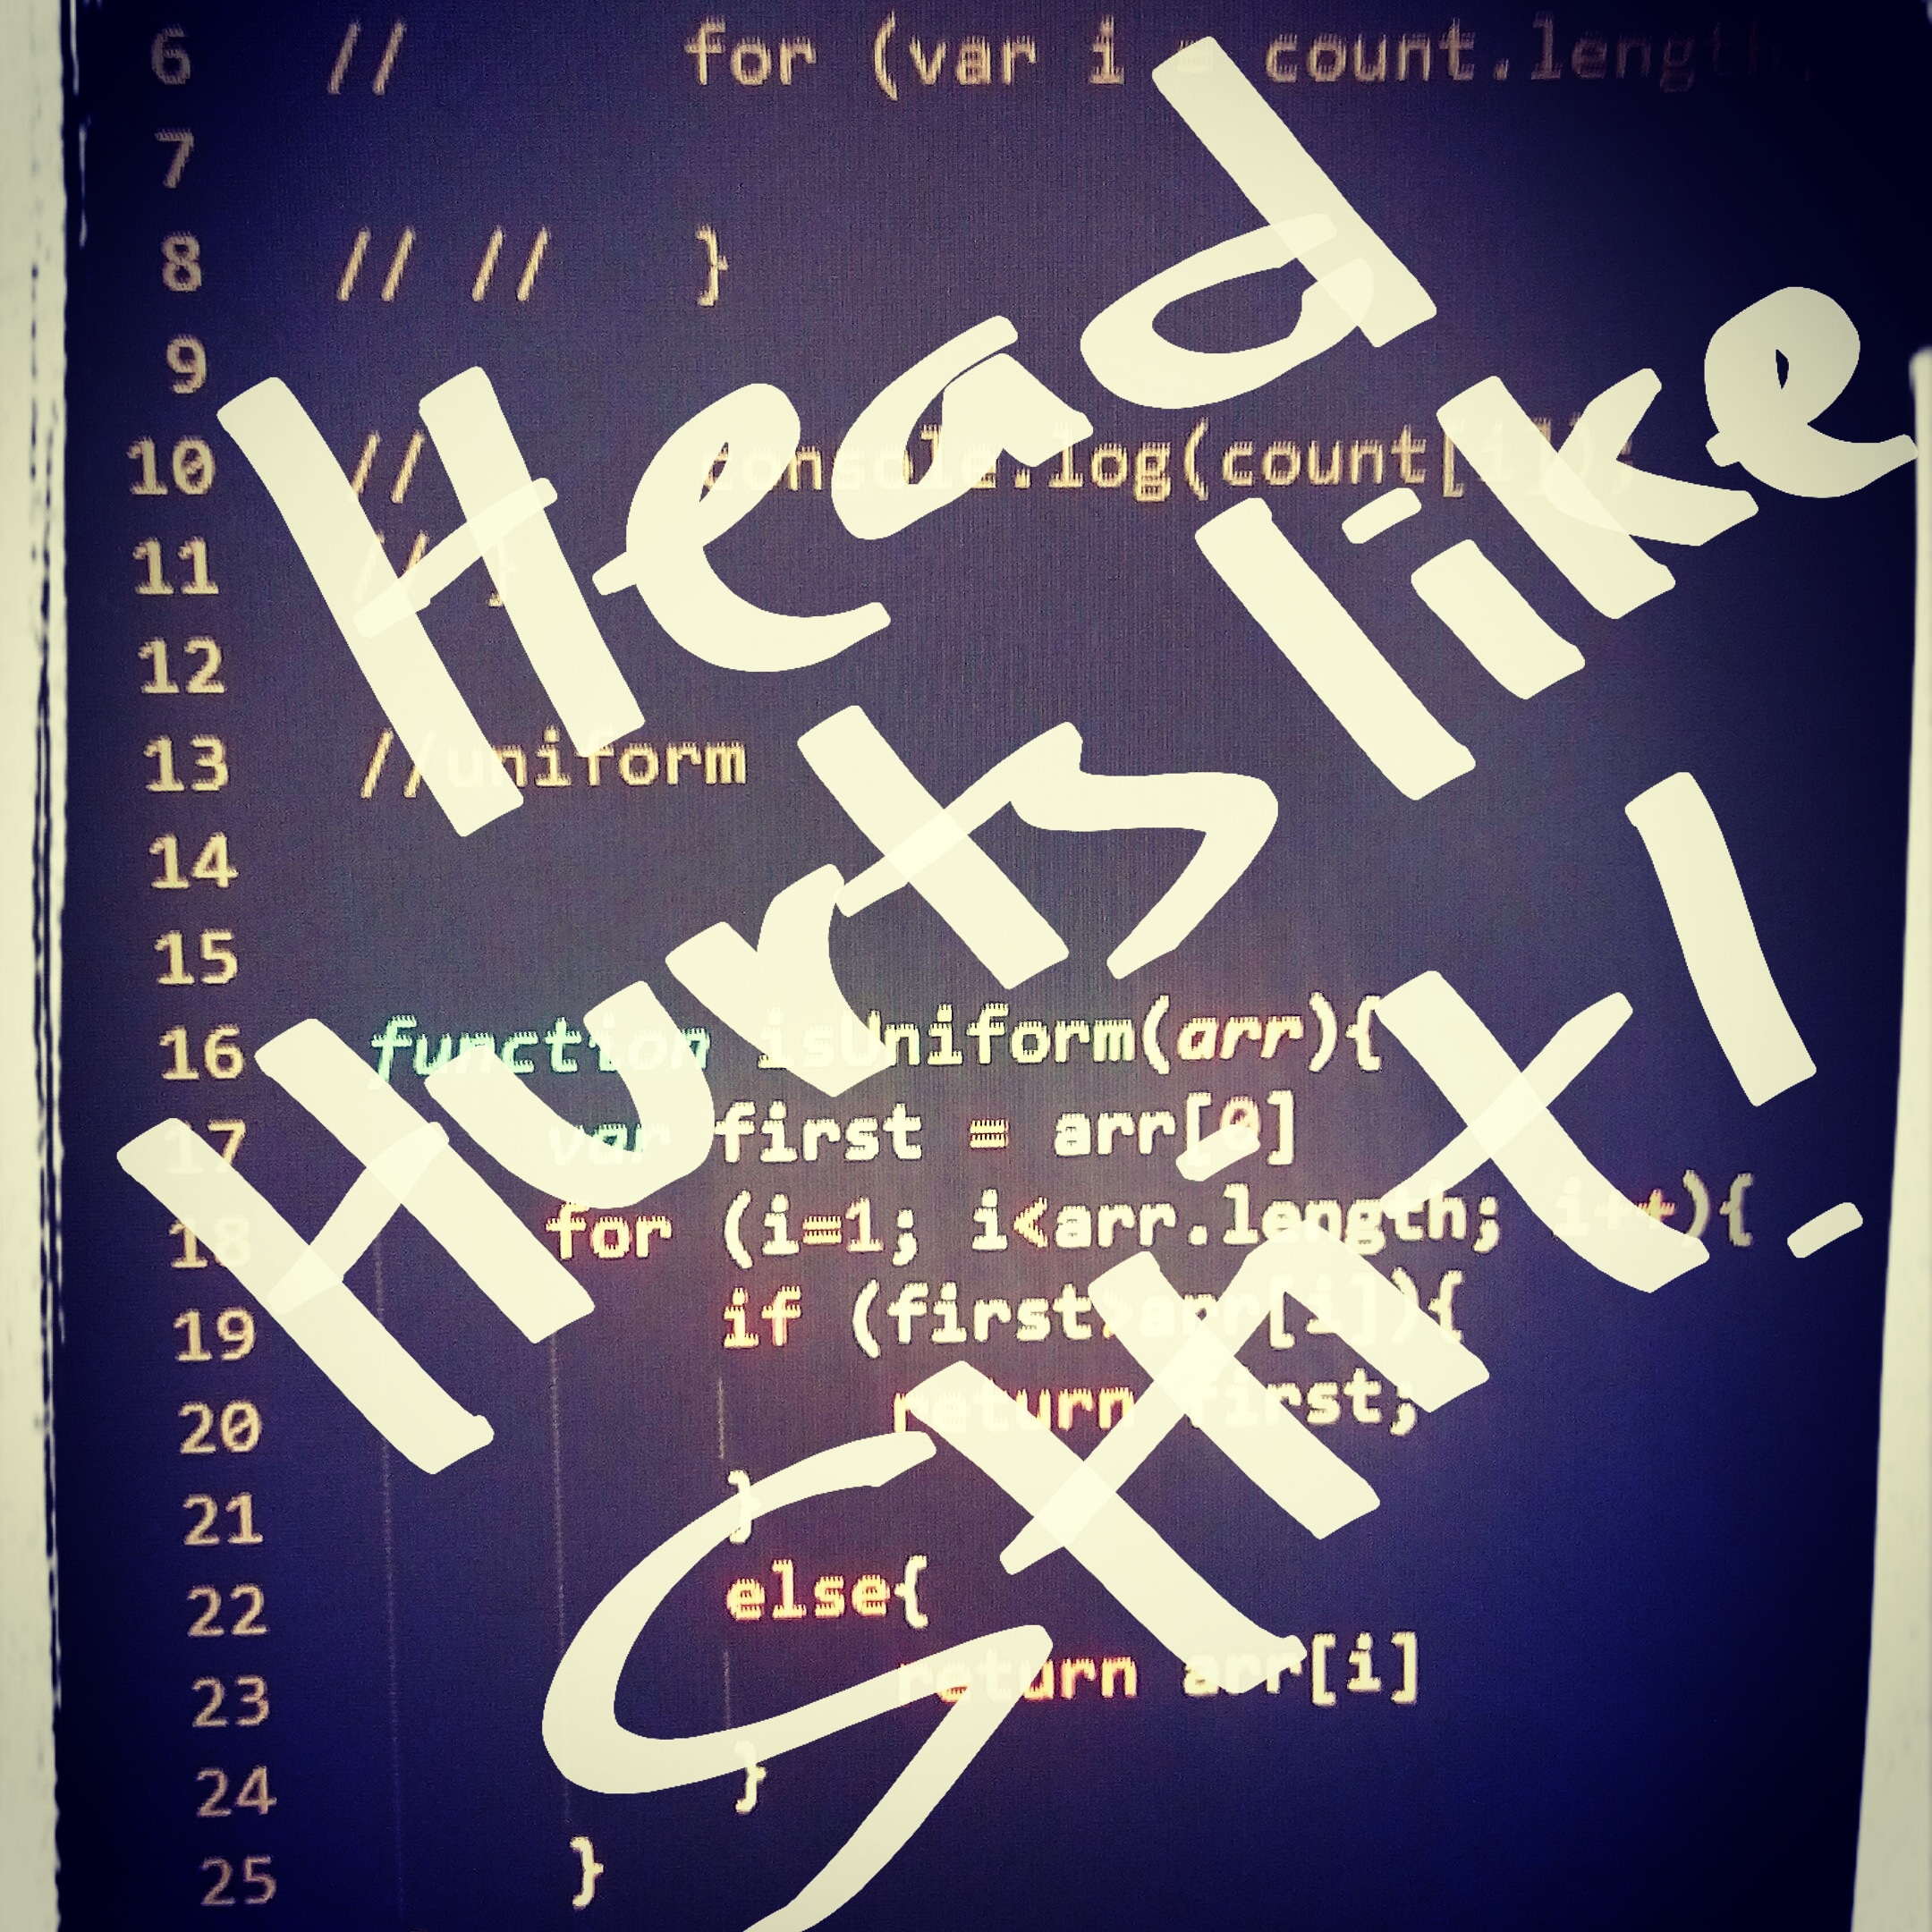 6 // for (var i = count.length
7
8 // // }
9
10 // console.log(count[i]);
11 // }
12
13 //uniform
14
15
16 function isUniform(arr){
17 var first = arr[0]
18 for (i=1; i<arr.length; i++){
19 if (first>arr[i]){
20 return first;
21 }
22 else{
23 return arr[i]
24 }
25 }
Head
Hurts like
SHit!